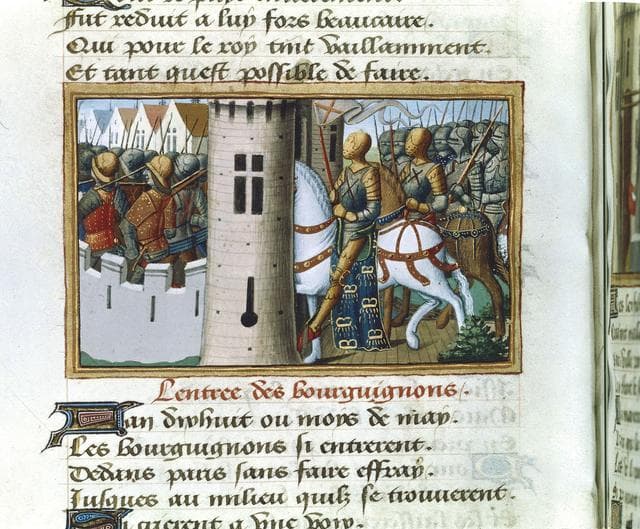 fut reduit a luy fors beaucaire.
Qui pour le roy tint vaillamment.
Et tant quest possible de faire.
Lentree des bourguignons.
Lan dixhuit ou moys de may.
Les bourguignons si entrerent.
Dedans paris sans faire effray.
Jusques au milieu quilz se trouverent.
crierent a une voix.